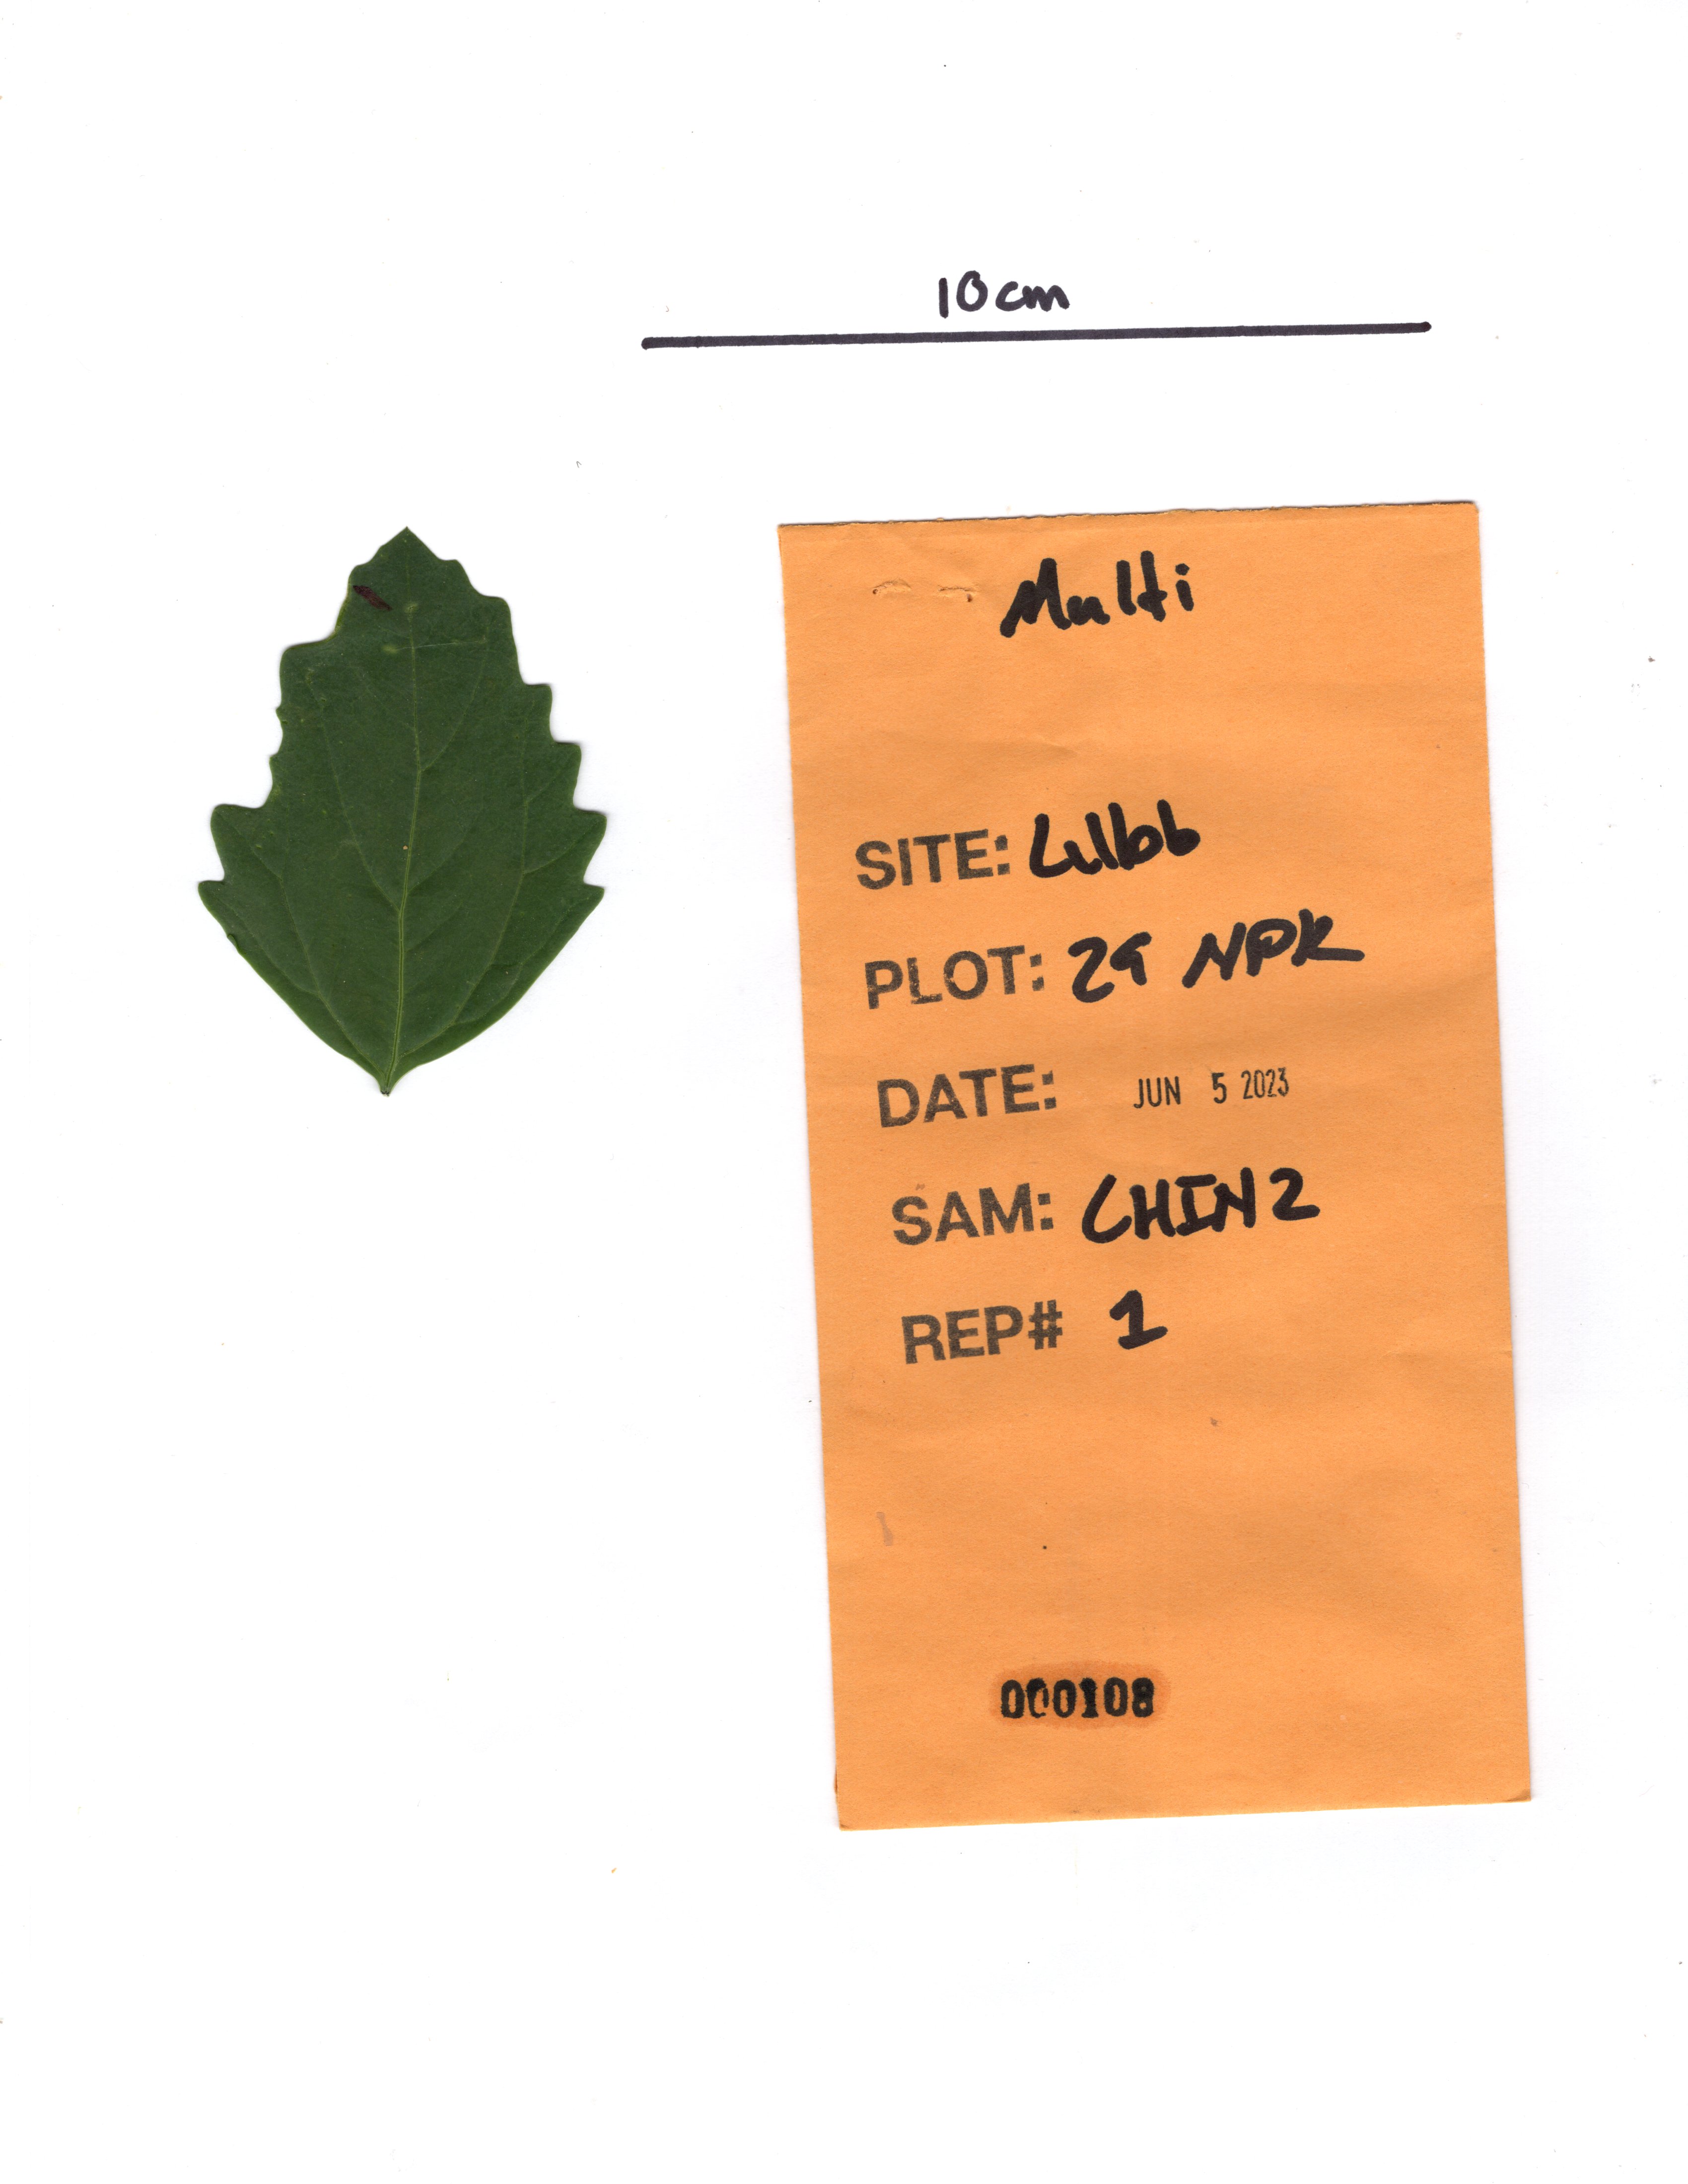 10cm
Multi
SITE: Lubb
PLOT: 29 NPK
DATE: JUN 5 2023
SAM: CHIN2
REP# 1
000108